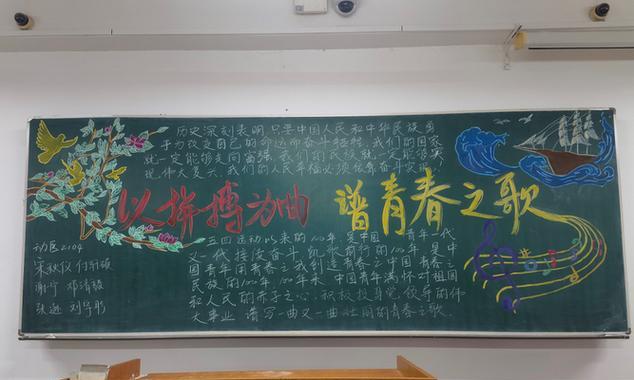 历史深刻表明,只要中国人民和中华民族勇
于为改变自己的命运而奋斗牺牲,我们的国家
就一定能够走向富强,我们的民族就一定能够实
现伟大复兴,我们的人民幸福必须依靠奋斗实现
以拼搏为曲 谱青春之歌
五四运动以来的100年,是中国青年一代
又一代接续奋斗、凯歌前行的100年,是中
国青年用青春之我创造青春之中国、青春之
民族的100年。100年来,中国青年满怀对祖国
和人民的赤子之心,积极投身党领导的伟
大事业,谱写一曲又一曲壮丽的青春之歌.
2104